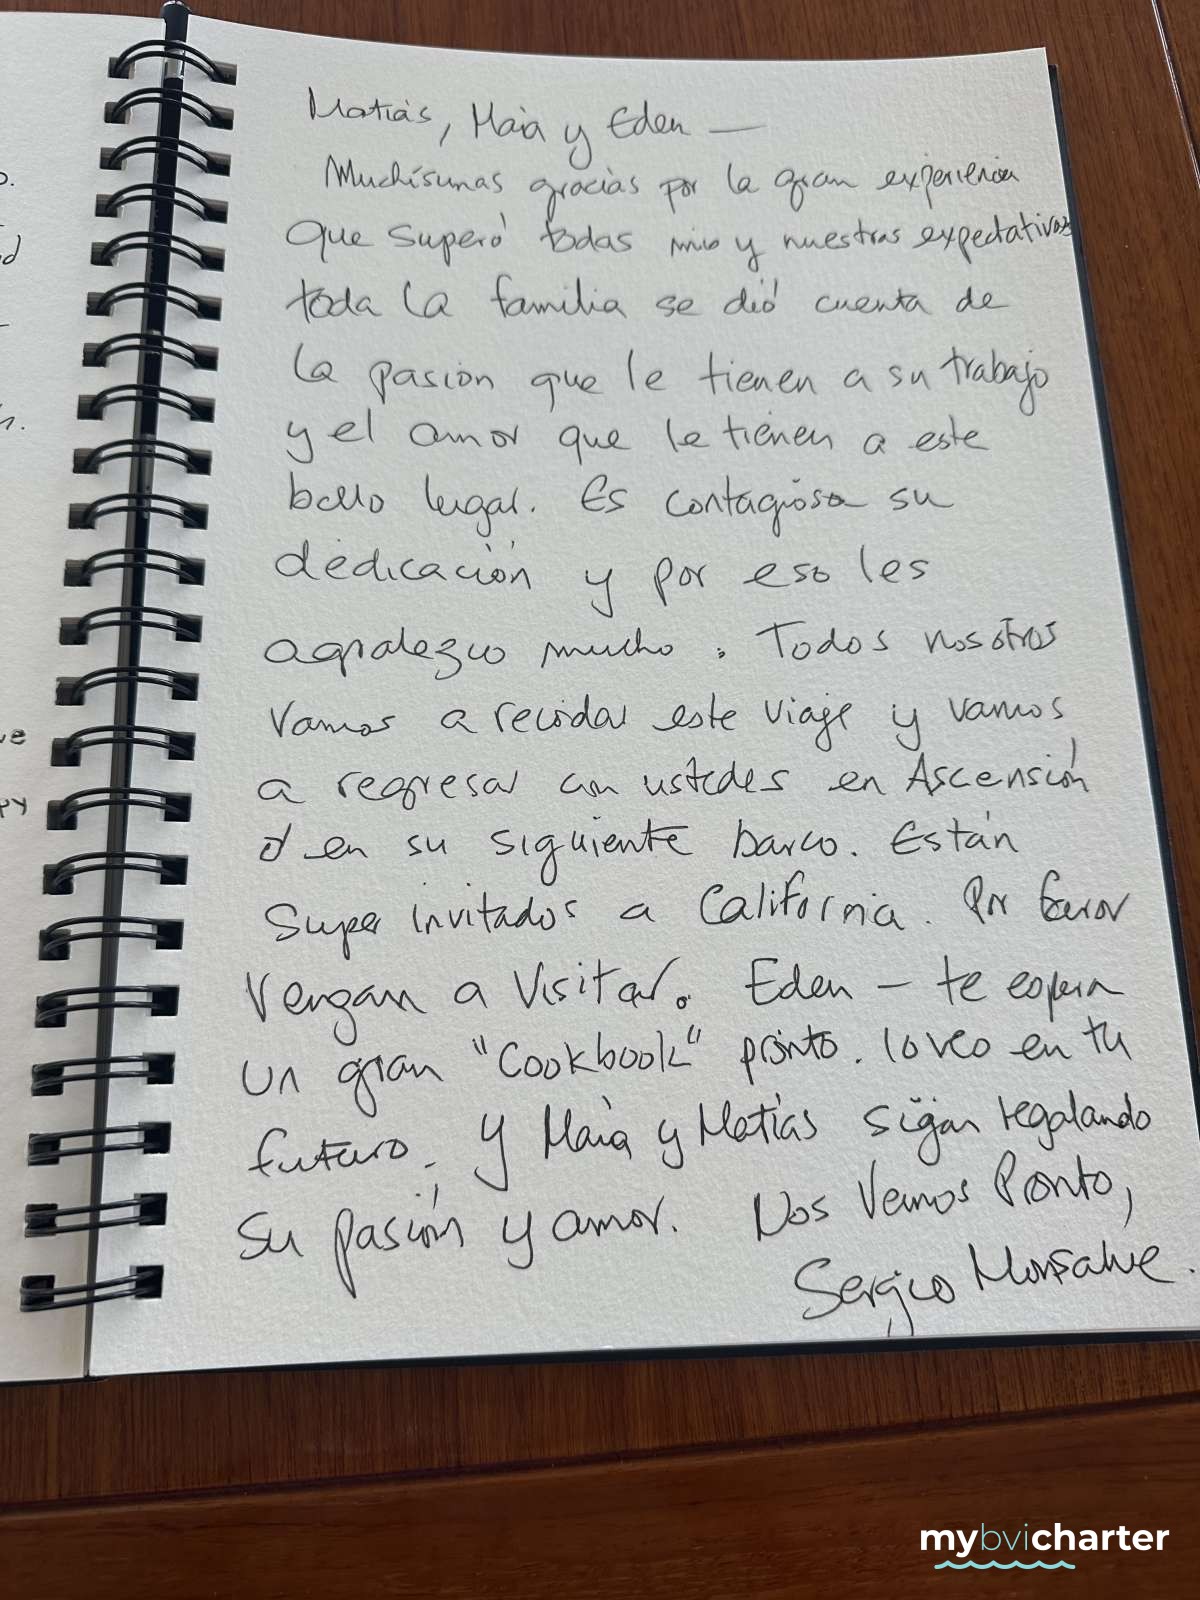 Matías, Maia y Eden —
Muchísimas gracias por la gran experiencia
que superó todas mis y nuestras expectativas
toda la familia se dió cuenta de
la pasión que le tienen a su trabajo
y el amor que le tienen a este
bello lugar. Es contagiosa su
dedicación y por eso les
agradezco mucho. Todos nosotros
vamos a recordar este viaje y vamos
a regresar con ustedes en Ascensión
o en su siguiente barco. Están
super invitados a California. Por favor
vengan a visitar. Eden — te espera
un gran "Cookbook" pronto. lo veo en tu
futuro. Y Maia y Matías sigan regalando
su pasión y amor. Nos Vemos Pronto,
Sergio Monsalve.
mybvicharter